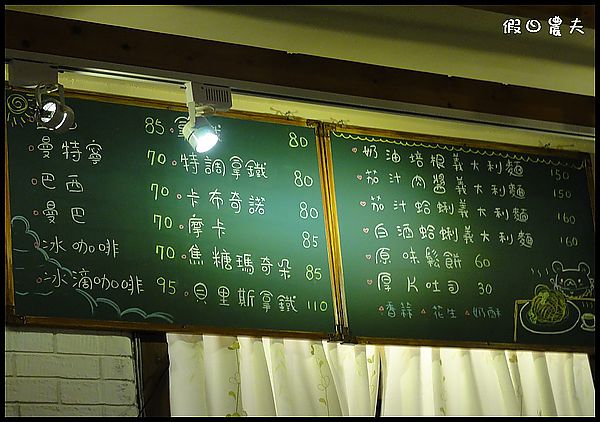 假日農夫
85
曼特寧 70
巴西 70
曼巴 70
冰咖啡 70
冰滴咖啡 95
拿鐵 80
特調拿鐵 80
卡布奇諾 80
摩卡 85
焦糖瑪奇朵 85
貝里斯拿鐵 110
奶油培根義大利麵 150
茄汁肉醬義大利麵 150
茄汁蛤蜊義大利麵 160
白酒蛤蜊義大利麵 160
原味鬆餅 60
厚片吐司 30
香蒜 花生 奶酥